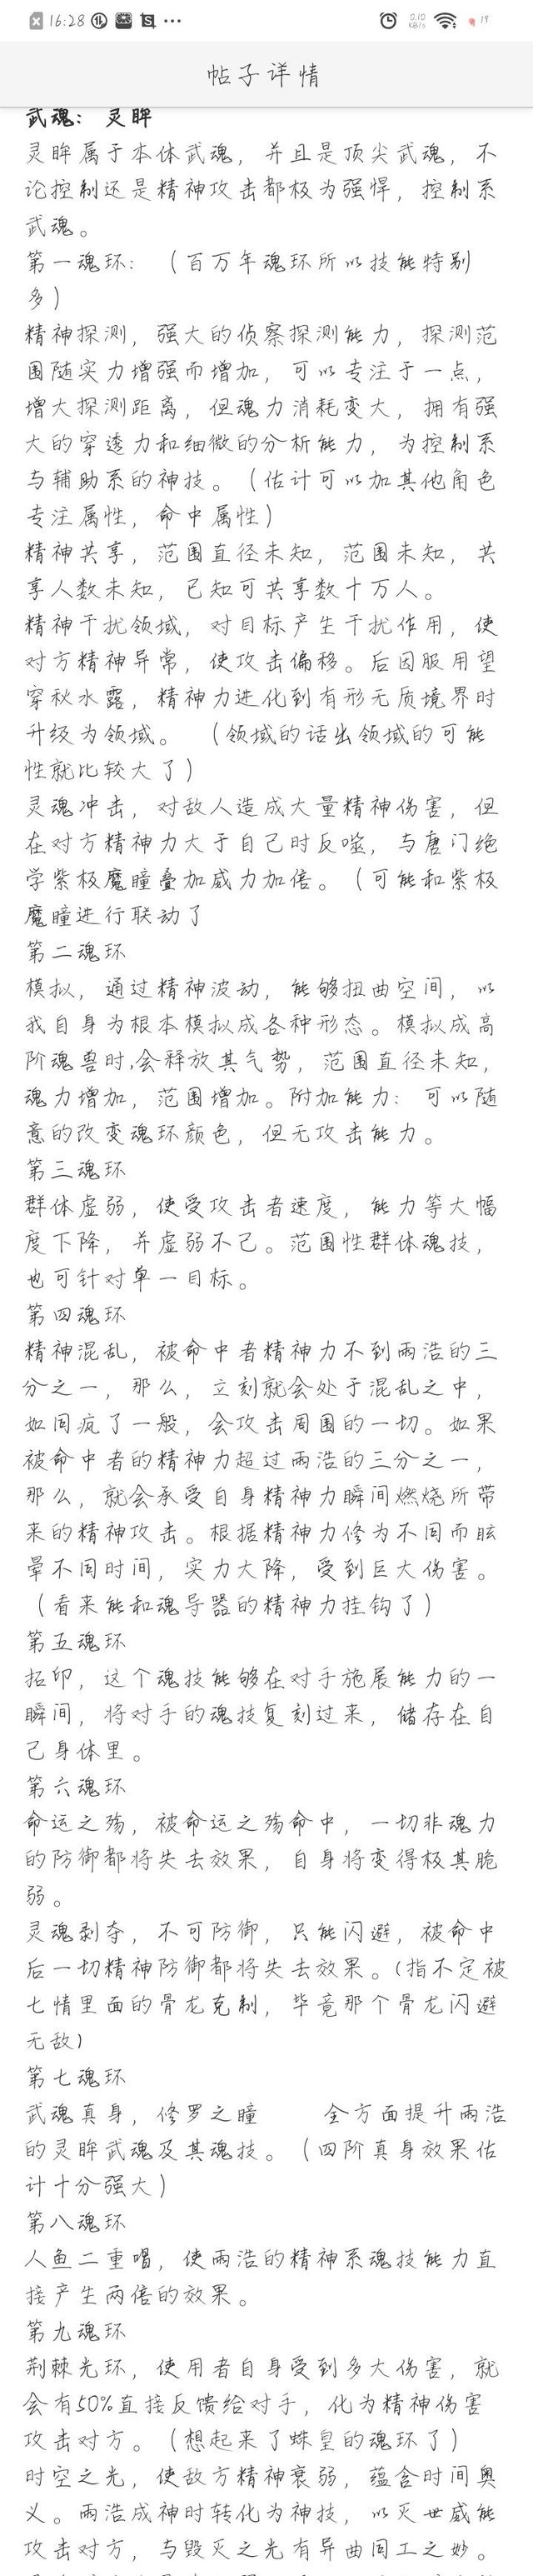 16:28
0.10
KB/s
19
帖子详情
武魂：灵眸
灵眸属于本体武魂，并且是顶尖武魂，不
论控制还是精神攻击都极为强悍，控制系
武魂。
第一魂环：（百万年魂环所以技能特别
多）
精神探测，强大的侦察探测能力，探测范
围随实力增强而增加，可以专注于一点，
增大探测距离，但魂力消耗变大，拥有强
大的穿透力和细微的分析能力，为控制系
与辅助系的神技。（估计可以加其他角色
专注属性，命中属性）
精神共享，范围直径未知，范围未知，共
享人数未知，已知可共享数十万人。
精神干扰领域，对目标产生干扰作用，使
对方精神异常，使攻击偏移。后因服用望
穿秋水露，精神力进化到有形无质境界时
升级为领域。（领域的话出领域的可能
性就比较大了）
灵魂冲击，对敌人造成大量精神伤害，但
在对方精神力大于自己时反噬，与唐门绝
学紫极魔瞳叠加威力加倍。（可能和紫极
魔瞳进行联动了
第二魂环
模拟，通过精神波动，能够扭曲空间，以
我自身为根本模拟成各种形态。模拟成高
阶魂兽时,会释放其气势，范围直径未知，
魂力增加，范围增加。附加能力：可以随
意的改变魂环颜色，但无攻击能力。
第三魂环
群体虚弱，使受攻击者速度，能力等大幅
度下降，并虚弱不己。范围性群体魂技，
也可针对单一目标。
第四魂环
精神混乱，被命中者精神力不到雨浩的三
分之一，那么，立刻就会处于混乱之中，
如同疯了一般，会攻击周围的一切。如果
被命中者的精神力超过雨浩的三分之一，
那么，就会承受自身精神力瞬间燃烧所带
来的精神攻击。根据精神力修为不同而眩
晕不同时间，实力大降，受到巨大伤害。
（看来能和魂导器的精神力挂钩了）
第五魂环
拓印，这个魂技能够在对手施展能力的一
瞬间，将对手的魂技复刻过来，储存在自
己身体里。
第六魂环
命运之殇，被命运之殇命中，一切非魂力
的防御都将失去效果，自身将变得极其脆
弱。
灵魂剥夺，不可防御，只能闪避，被命中
后一切精神防御都将失去效果。(指不定被
七情里面的骨龙克制，毕竟那个骨龙闪避
无敌)
第七魂环
武魂真身，修罗之瞳　　全方面提升雨浩
的灵眸武魂及其魂技。（四阶真身效果估
计十分强大）
第八魂环
人鱼二重唱，使雨浩的精神系魂技能力直
接产生两倍的效果。
第九魂环
荆棘光环，使用者自身受到多大伤害，就
会有50%直接反馈给对手，化为精神伤害
攻击对方。（想起来了蛛皇的魂环了）
时空之光，使敌方精神衰弱，蕴含时间奥
义。雨浩成神时转化为神技，以灭世威能
攻击对方，与毁灭之光有异曲同工之妙。